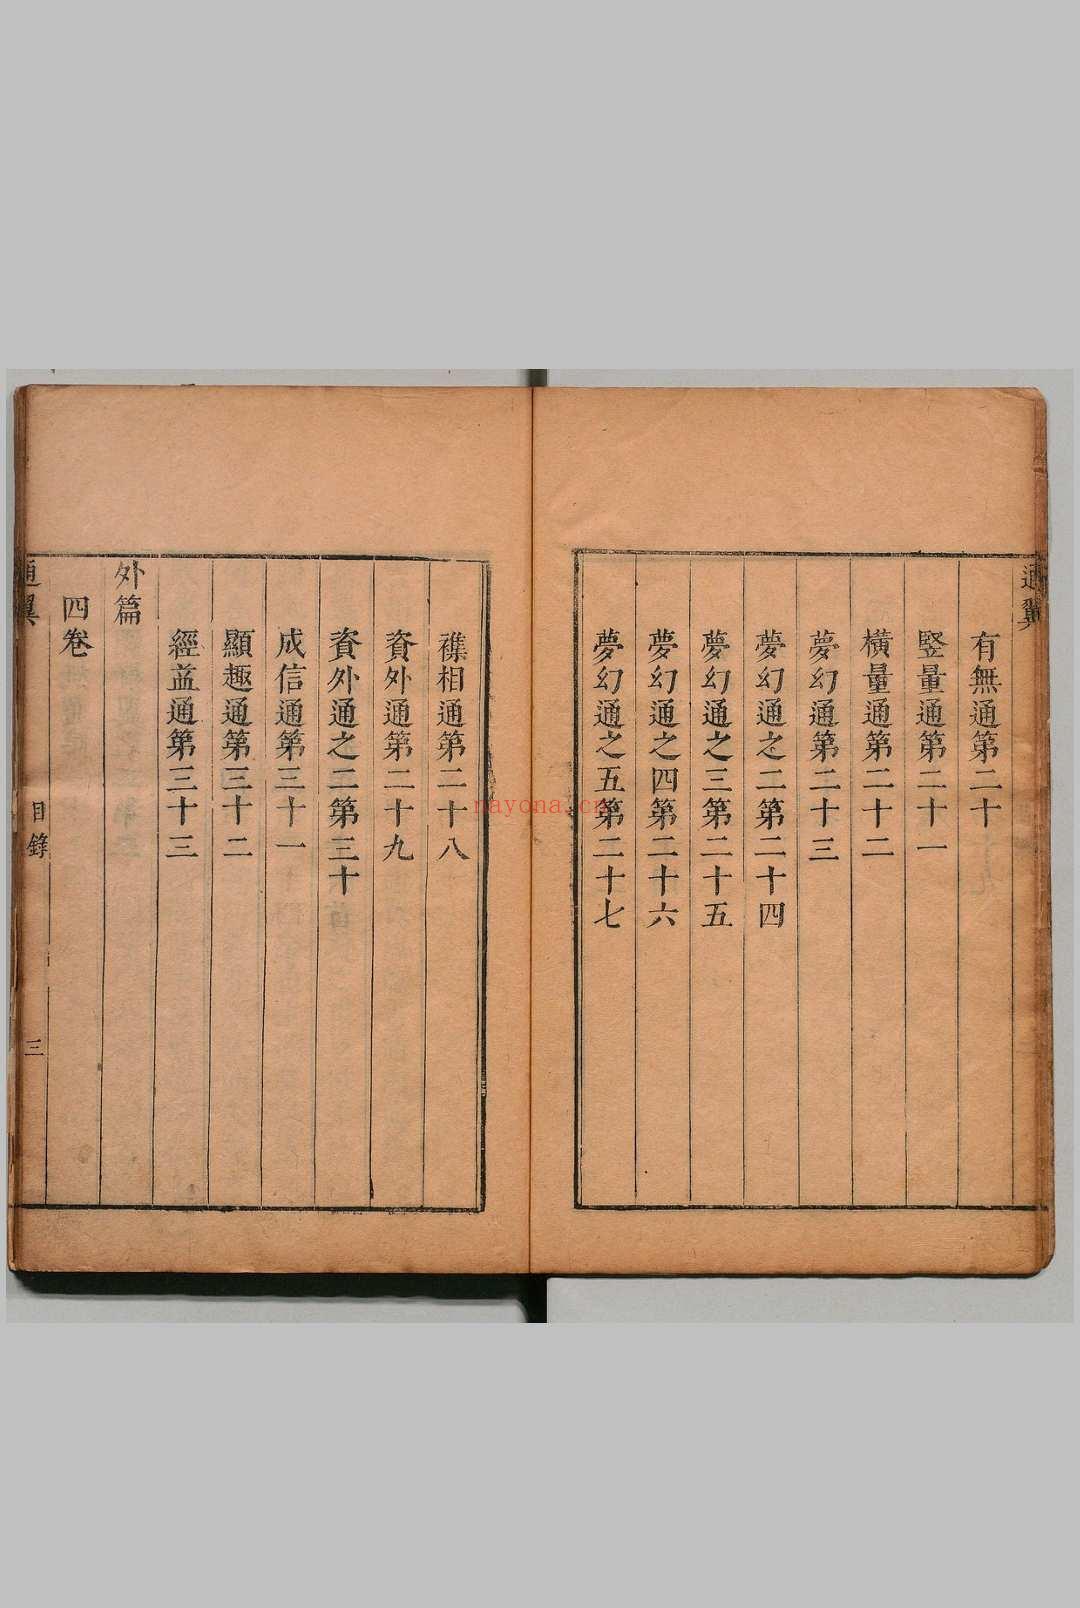 通翼
有無通第二十
竪量通第二十一
橫量通第二十二
夢幻通第二十三
夢幻通之二第二十四
夢幻通之三第二十五
夢幻通之四第二十六
夢幻通之五第二十七
襍相通第二十八
資外通第二十九
資外通之二第三十
成信通第三十一
顯趣通第三十二
經益通第三十三
外篇
四卷
通翼
目錄
三
nayona.cn